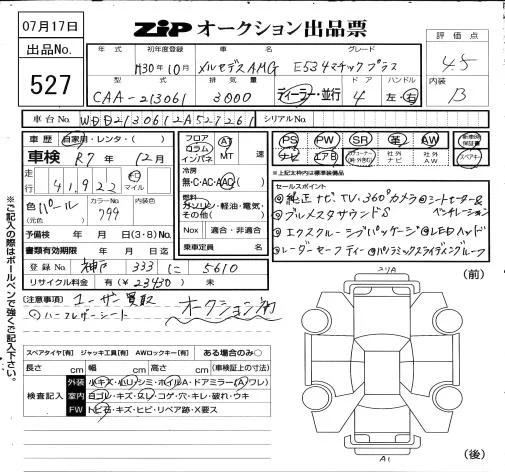 07月17日
ZiP オークション出品票
出品No.
527
年式 初年度登録 車名 グレード
H30年10月 メルセデスAMG E53 4マチックプラス
型式 排気量 ディーラー・並行 ドア ハンドル
CAA-213061 3000 4 左・右
評価点
4.5
内装
B
車台No. WDD2130612A527261 シリアルNo.
車歴 自家用・レンタ・( )
車検 R7年12月
走行 41,922 km マイル
色 パール カラーNo. 799 内装色
(元色)
予備検 年 月 日迄 (3・8) No.
書類有効期限 年 月 日迄
登録No. 神戸 333 に 5610
リサイクル料金 有(¥23430) 未
フロア コラム インパネ AT MT 速
冷房 無・C・AC・AAC
燃料 ガソリン・軽油・電気・その他( )
Nox 適合・非適合
乗車定員 名
PS PW SR 革 AW 新車時保証書
ナビ エアB 社外ナビ 社外AW スペアキー
※上記太枠内は標準装備品
セールスポイント
◎純正ナビ、TV、360°カメラ ◎シートヒーター&ベンチレーション
◎ブルメスタサウンドS
◎エクスクルーシブパッケージ ◎LEDヘッド
◎レーダーセーフティー ◎パノラミックスライディングルーフ
(注意事項) ユーザー買取 オークション初
○ハーフレザーシート
※ご記入の際はボールペンで強くご記入下さい。
スペアタイヤ[有] ジャッキ工具[有] AWロックキー[有] ある場合のみ○
長さ cm 幅 cm 高さ cm (車検証上の寸法)
検査記入
外装 小キズ・小リ・シミ・ホイルA・ドアミラー(A・ワレ)
室内 ヨゴレ・キズ・スレ・コゲ・穴・キレ・破れ・ウキ
FW トビ石・キズ・ヒビ・リペア跡・X要ス
(前)
(後)
A1